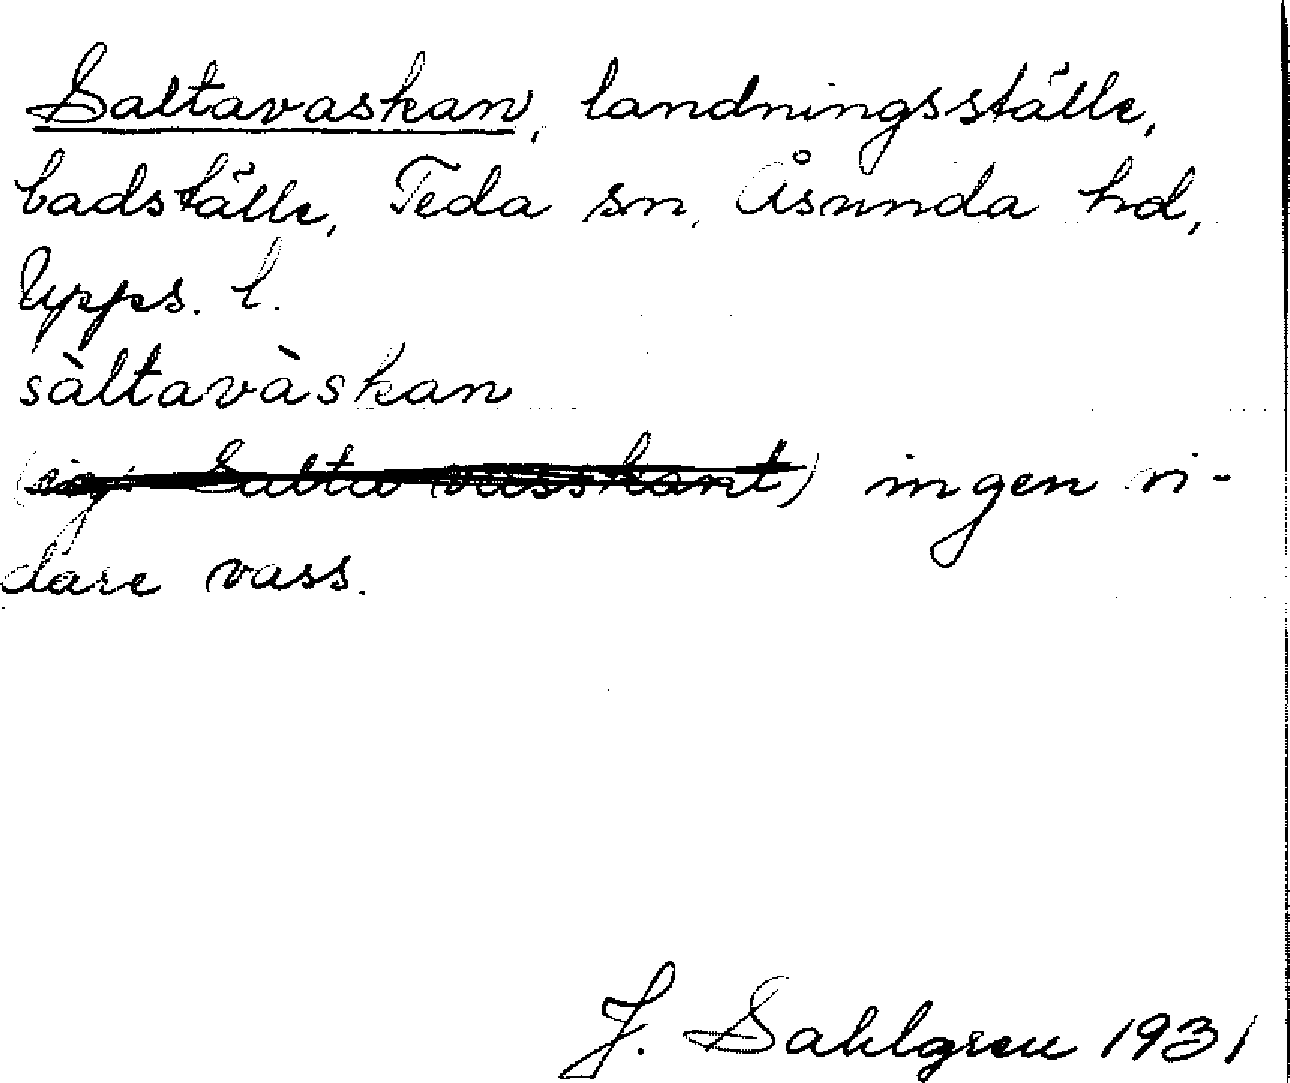 Saltavaskan, landningsställe,
badställe, Teda sn, Åsunda hd,
Upps. l.
sàltavàskan
(sig. Salta vasskant) ingen vi-
dare vass.
J. Sahlgren 1931